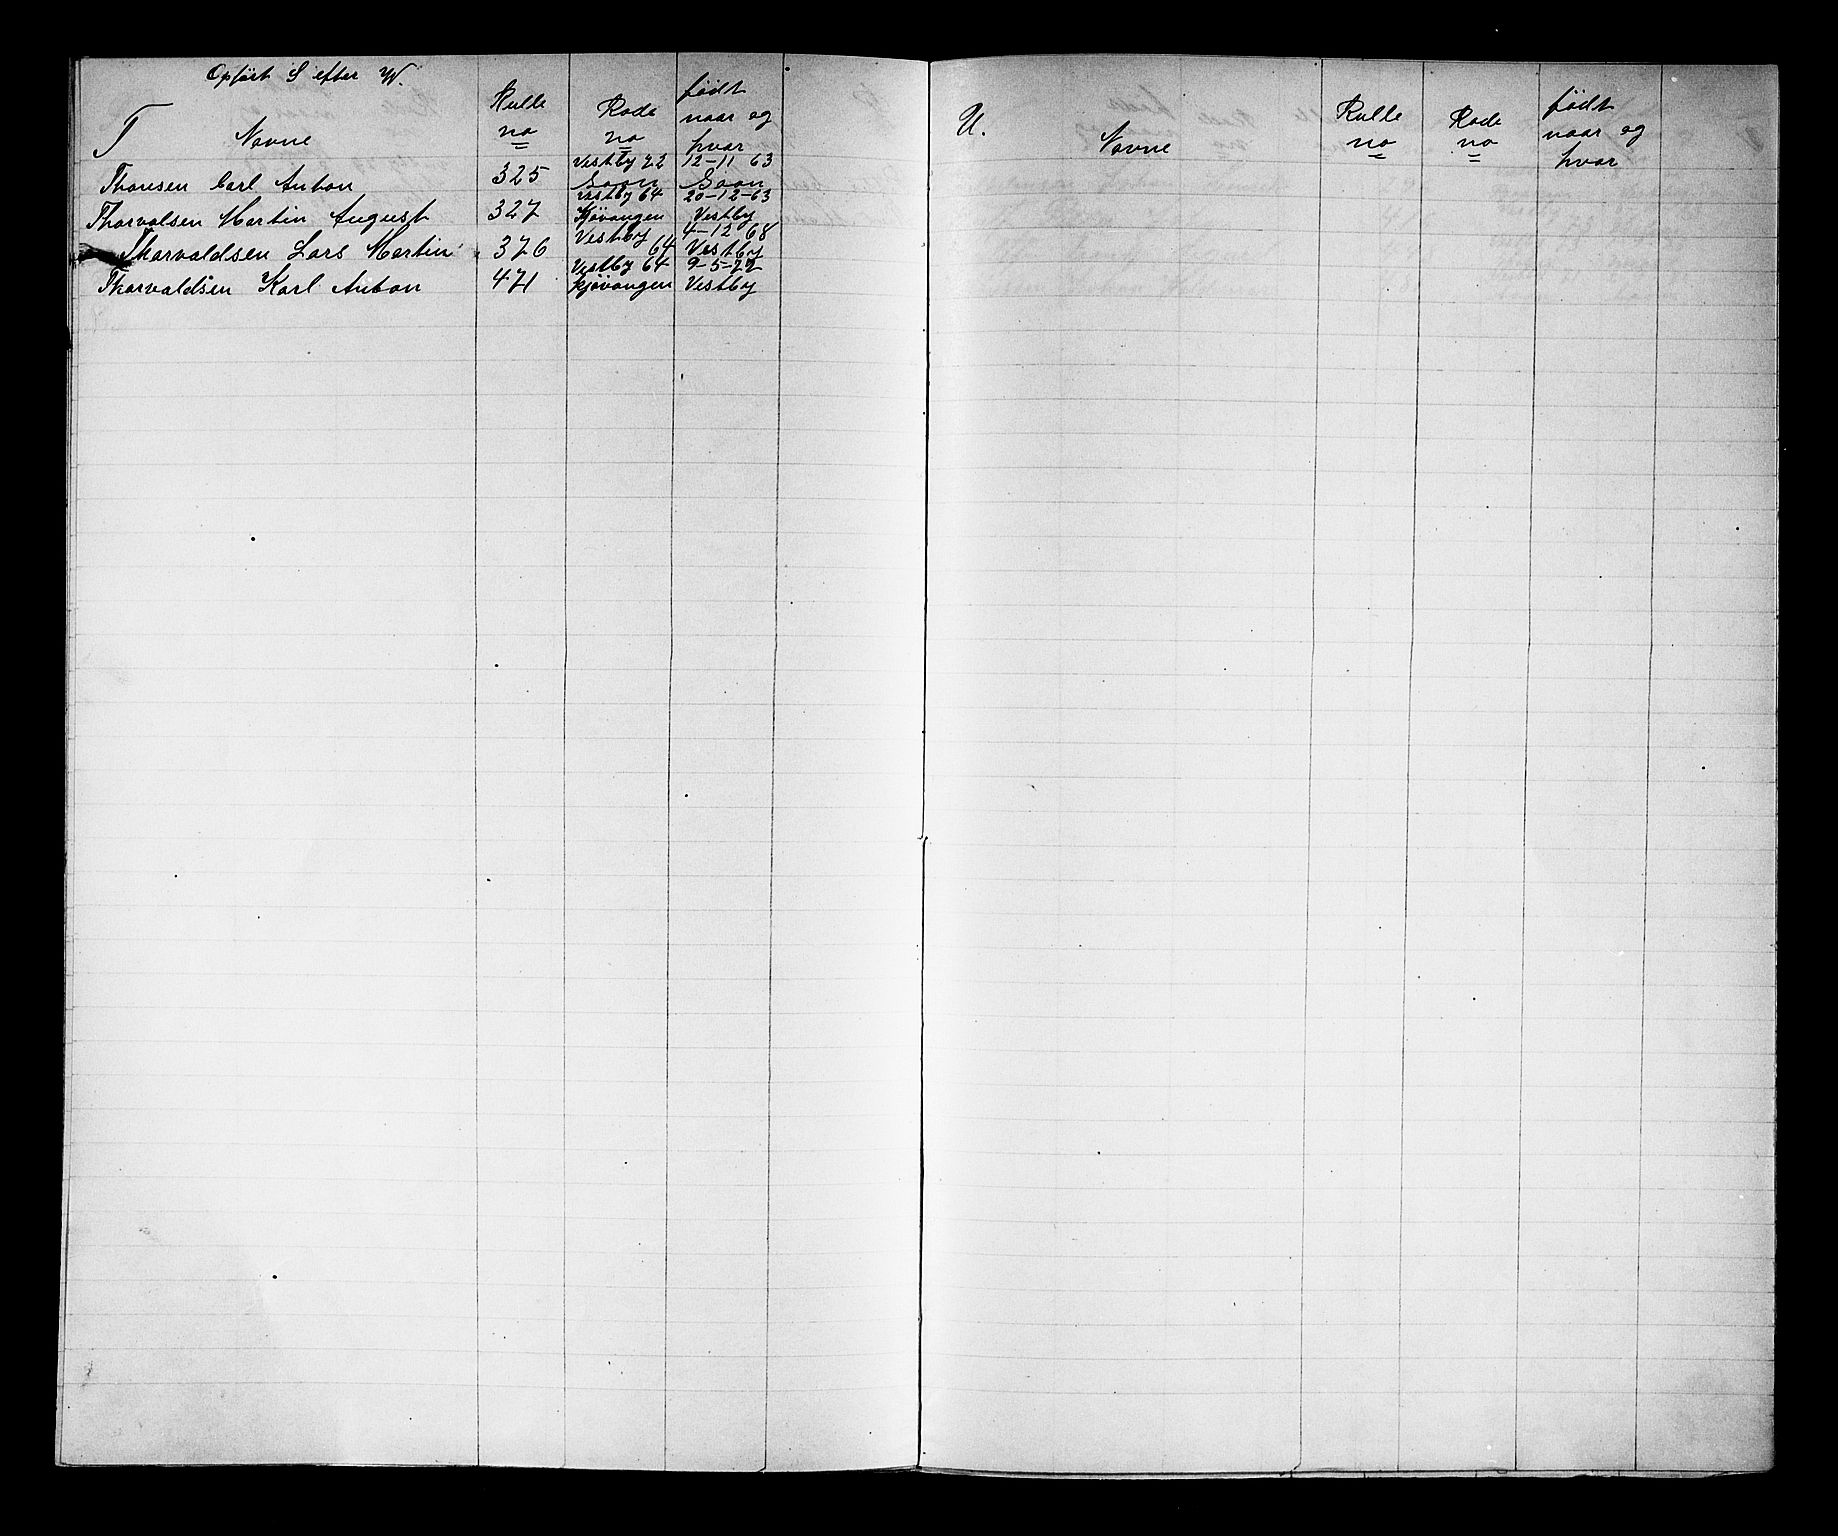 Opført S efter W.
T Navne Rulle no Rode no født naar og hvor
Thoresen Carl Anton 325 Vestby 22 Soon 12-11 63 Soon
Thorvalsen Martin August 327 Vestby 64 Kjøvangen 20-12-63 Vestby
Thorvaldsen Lars Martin 376 Vestby 64 4-12 68 Vestby
Thorvaldsen Karl Anton 471 Vestby 64 Kjøvangen 9-5-72 Vestby
U. Navne Rulle no Rode no født naar og hvor